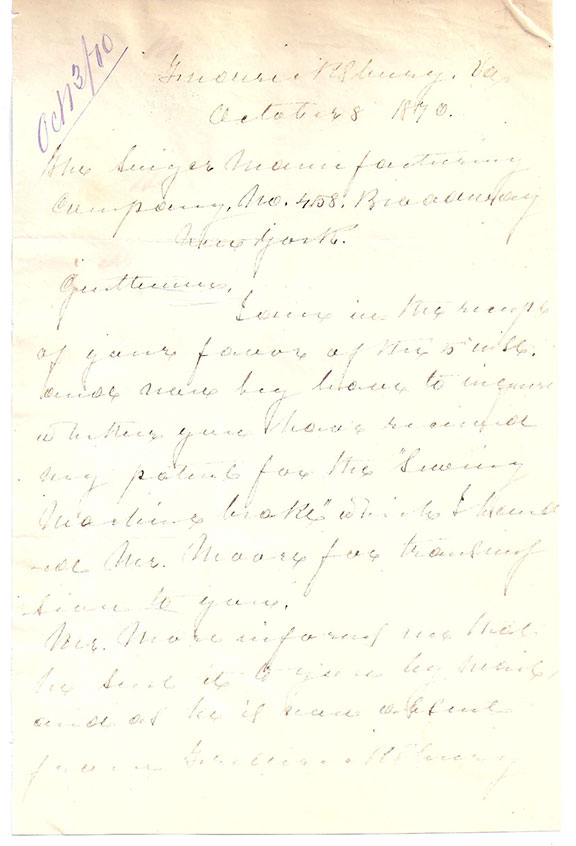 Oct 13/70
Fredericksburg, Va
October 8 1870.
The Singer Manufacturing
Company, No. 458. Broadway
New York.
Gentlemen,
I am in the receipt
of your favor of the 5" inst.
and now beg leave to inquire
whether you have received
my patent for the "Sewing
Machine brake" which I hand
-ed Mr. Moore for transmis
sion to you.
Mr. More informs me that
he sent it to you by mail,
and as he is now absent
from Fredericksburg